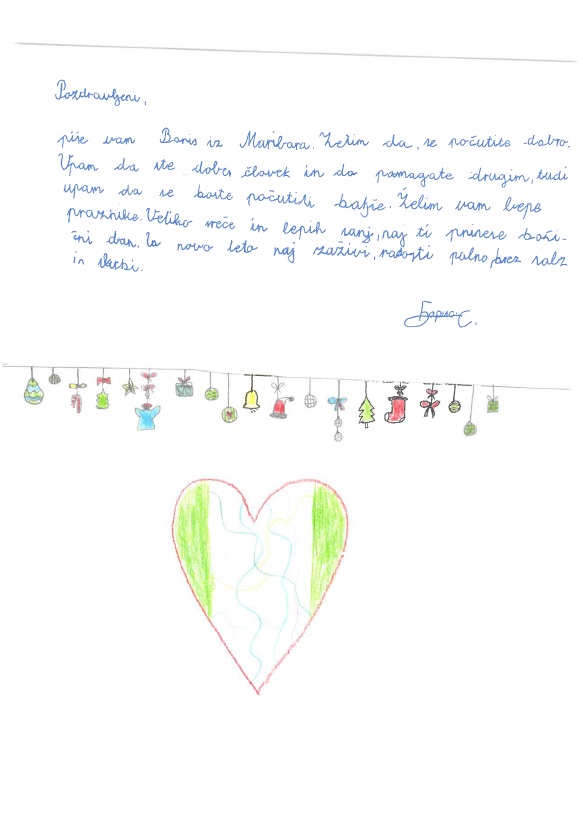 Pozdravljeni,
piše vam Boris iz Maribora. Želim da, se počutite dobro.
Upam da ste dober človek in da pomagate drugim, tudi
upam da se boste počutili boljše. Želim vam lepe
praznike. Veliko sreče in lepih sanj, naj ti prinese boži-
čni dan. To novo leto naj zaživi, radosti polno, brez solz
in skrbi.
Борис С.